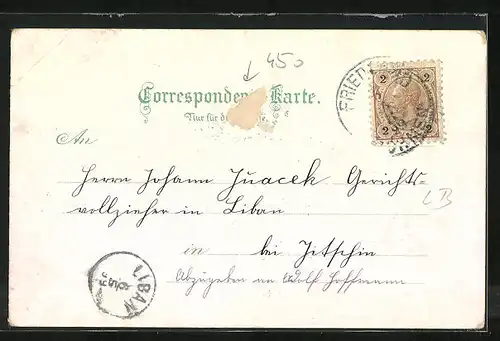 450
Correspondenz-Karte.
Nur für die Adresse.
FRIED
2 2
2 2
An
Herrn Johann Juacek Gerichts-
vollzieher in Liban
LB
in bei Jitschin
Abzugeben an Adolf Hoffmann
LIBAN